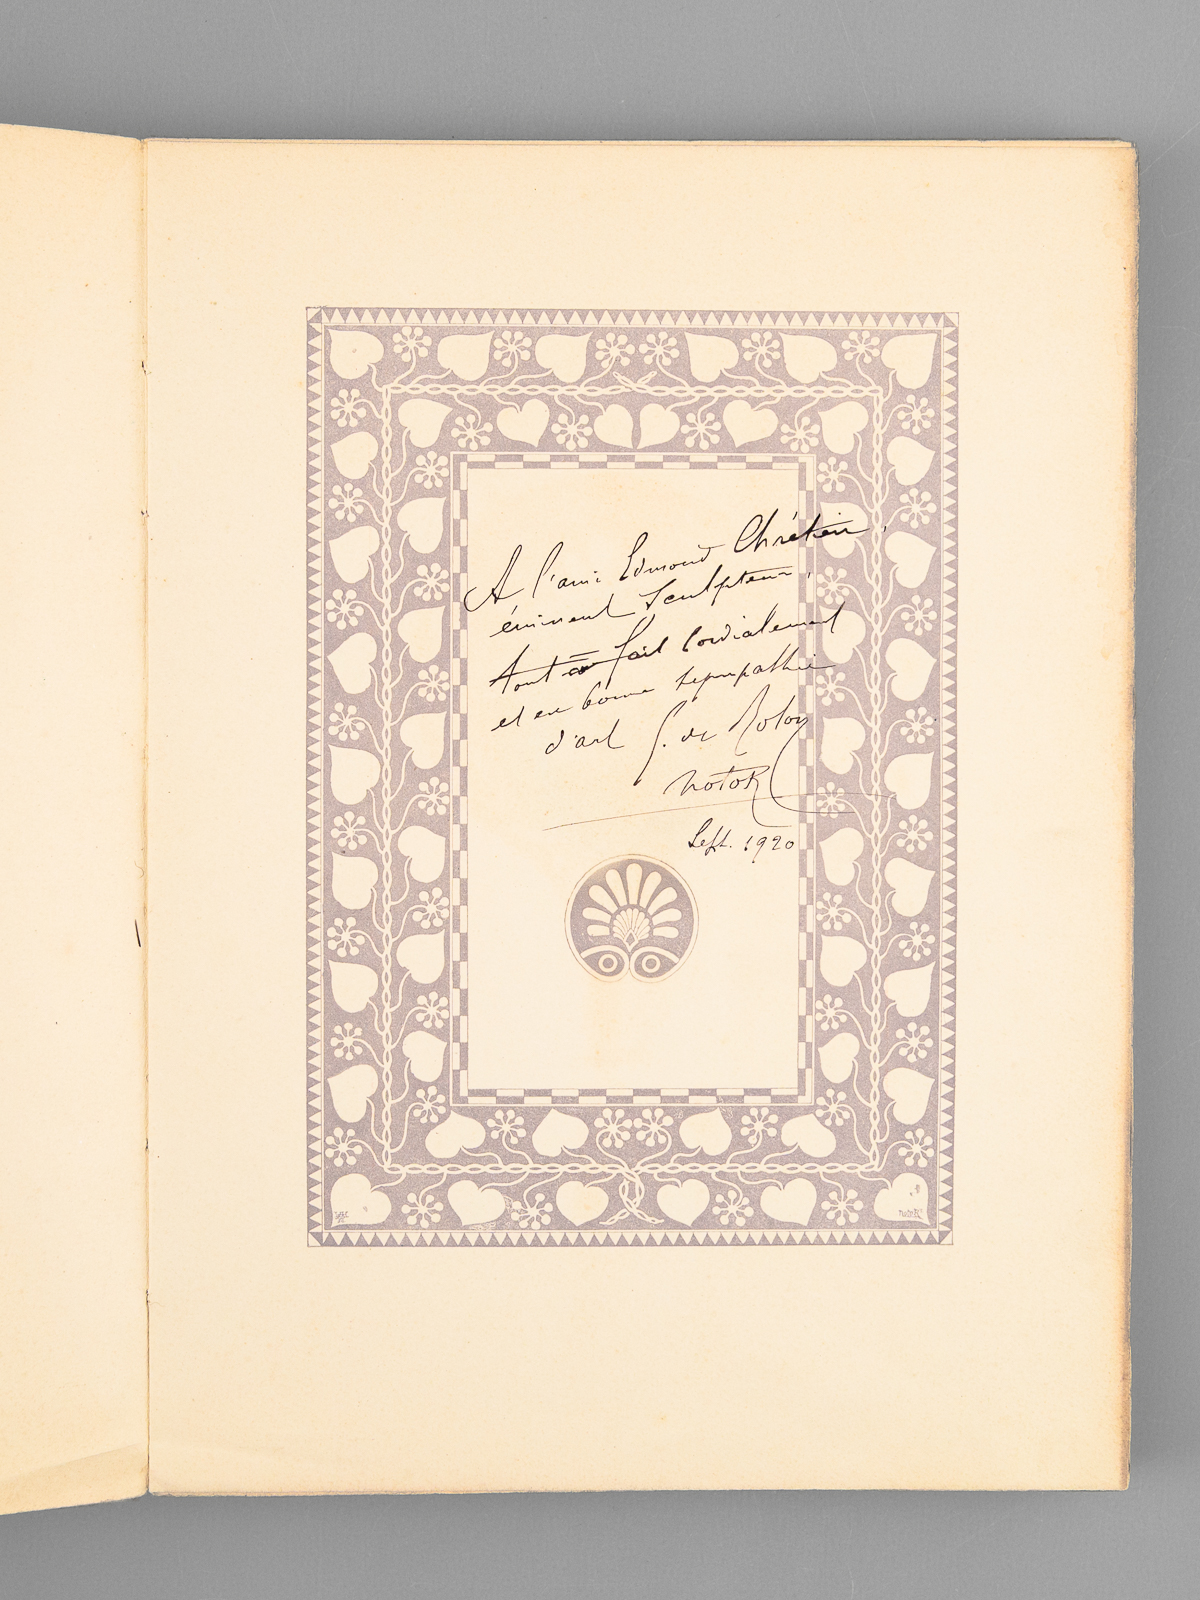 A l'ami Edmond Chrétien,
éminent sculpteur,
tout à fait cordialement
et en bonne sympathie
d'art G. de Roton
NotoR
Sept. 1920